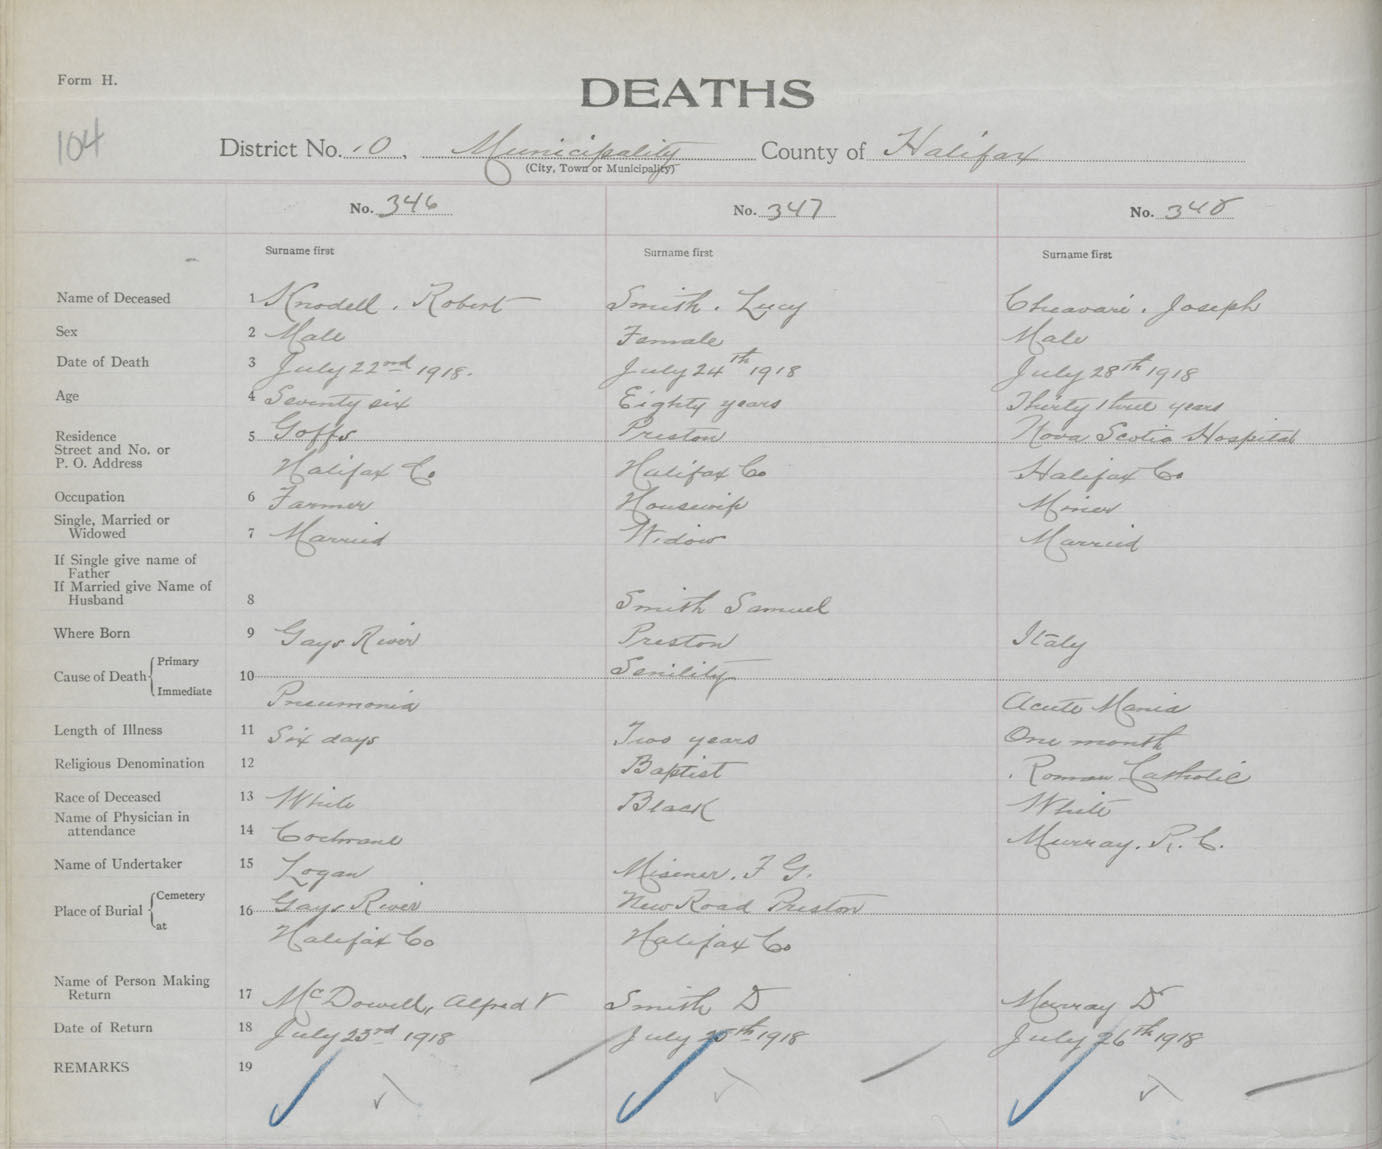 Form H.
DEATHS
104
District No. 10. Municipality County of Halifax
(City, Town or Municipality)
No. 346 No. 347 No. 348
Surname first Surname first Surname first
Name of Deceased 1 Knodell. Robert Smith. Lucy Cheavari. Joseph
Sex 2 Male Female Male
Date of Death 3 July 22nd 1918. July 24th 1918 July 28th 1918
Age 4 Seventy six Eighty years Thirty three years
Residence 5 Goffs Preston Nova Scotia Hospital
Street and No. or
P. O. Address Halifax Co Halifax Co Halifax Co
Occupation 6 Farmer Housewife Miner
Single, Married or
Widowed 7 Married Widow Married
If Single give name of
Father
If Married give Name of
Husband 8 Smith Samuel
Where Born 9 Gays River Preston Italy
Cause of Death Primary 10 Senility
Immediate Pneumonia Acute Mania
Length of Illness 11 Six days Two years One month
Religious Denomination 12 Baptist Roman Catholic
Race of Deceased 13 White Black White
Name of Physician in
attendance 14 Cochrane Murray. R. C.
Name of Undertaker 15 Logan Misener. F G.
Place of Burial Cemetery 16 Gays River New Road Preston
at Halifax Co Halifax Co
Name of Person Making
Return 17 McDowell, Alfred V Smith D Murray D
Date of Return 18 July 23rd 1918 July 25th 1918 July 26th 1918
REMARKS 19